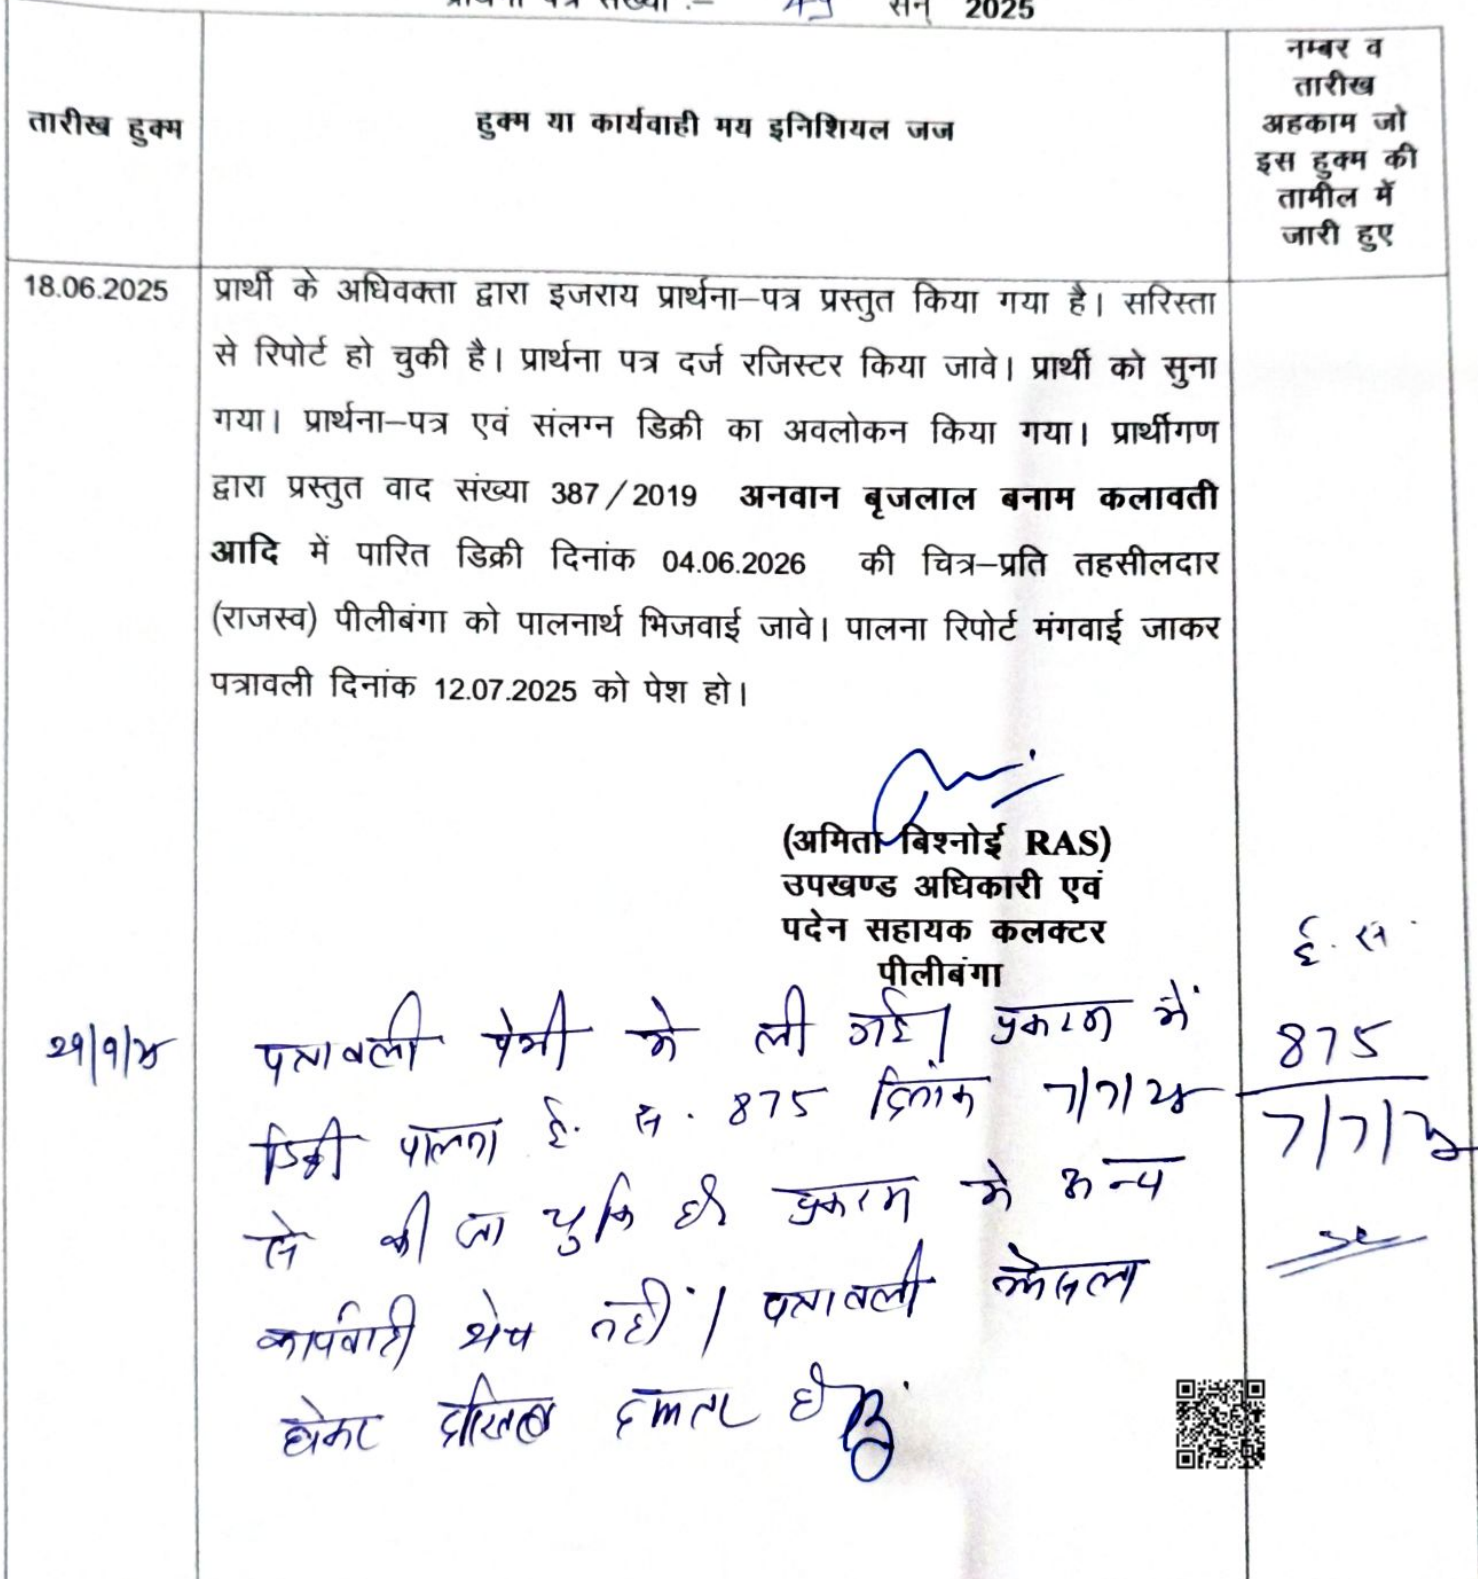 प्रार्थना पत्र संख्या :– सन् 2025
तारीख हुक्म
हुक्म या कार्यवाही मय इनिशियल जज
नम्बर व
तारीख
अहकाम जो
इस हुक्म की
तामील में
जारी हुए
18.06.2025
प्रार्थी के अधिवक्ता द्वारा इजराय प्रार्थना–पत्र प्रस्तुत किया गया है। सरिस्ता
से रिपोर्ट हो चुकी है। प्रार्थना पत्र दर्ज रजिस्टर किया जावे। प्रार्थी को सुना
गया। प्रार्थना–पत्र एवं संलग्न डिक्री का अवलोकन किया गया। प्रार्थीगण
द्वारा प्रस्तुत वाद संख्या 387/2019 अनवान बृजलाल बनाम कलावती
आदि में पारित डिक्री दिनांक 04.06.2026 की चित्र–प्रति तहसीलदार
(राजस्व) पीलीबंगा को पालनार्थ भिजवाई जावे। पालना रिपोर्ट मंगवाई जाकर
पत्रावली दिनांक 12.07.2025 को पेश हो।
(अमिता बिश्नोई RAS)
उपखण्ड अधिकारी एवं
पदेन सहायक कलक्टर
पीलीबंगा
पत्रावली पेशी मे ली गई। प्रकरण में
डिक्री पालना ई. स. 875 दिनांक 7/7/25
से की जा चुकि है प्रकरण मे अन्य
कार्यवाही शेष नहीं। पत्रावली फैसला
होकर दाखिल दफ्तर हो
ई. स.
875
7/7/25